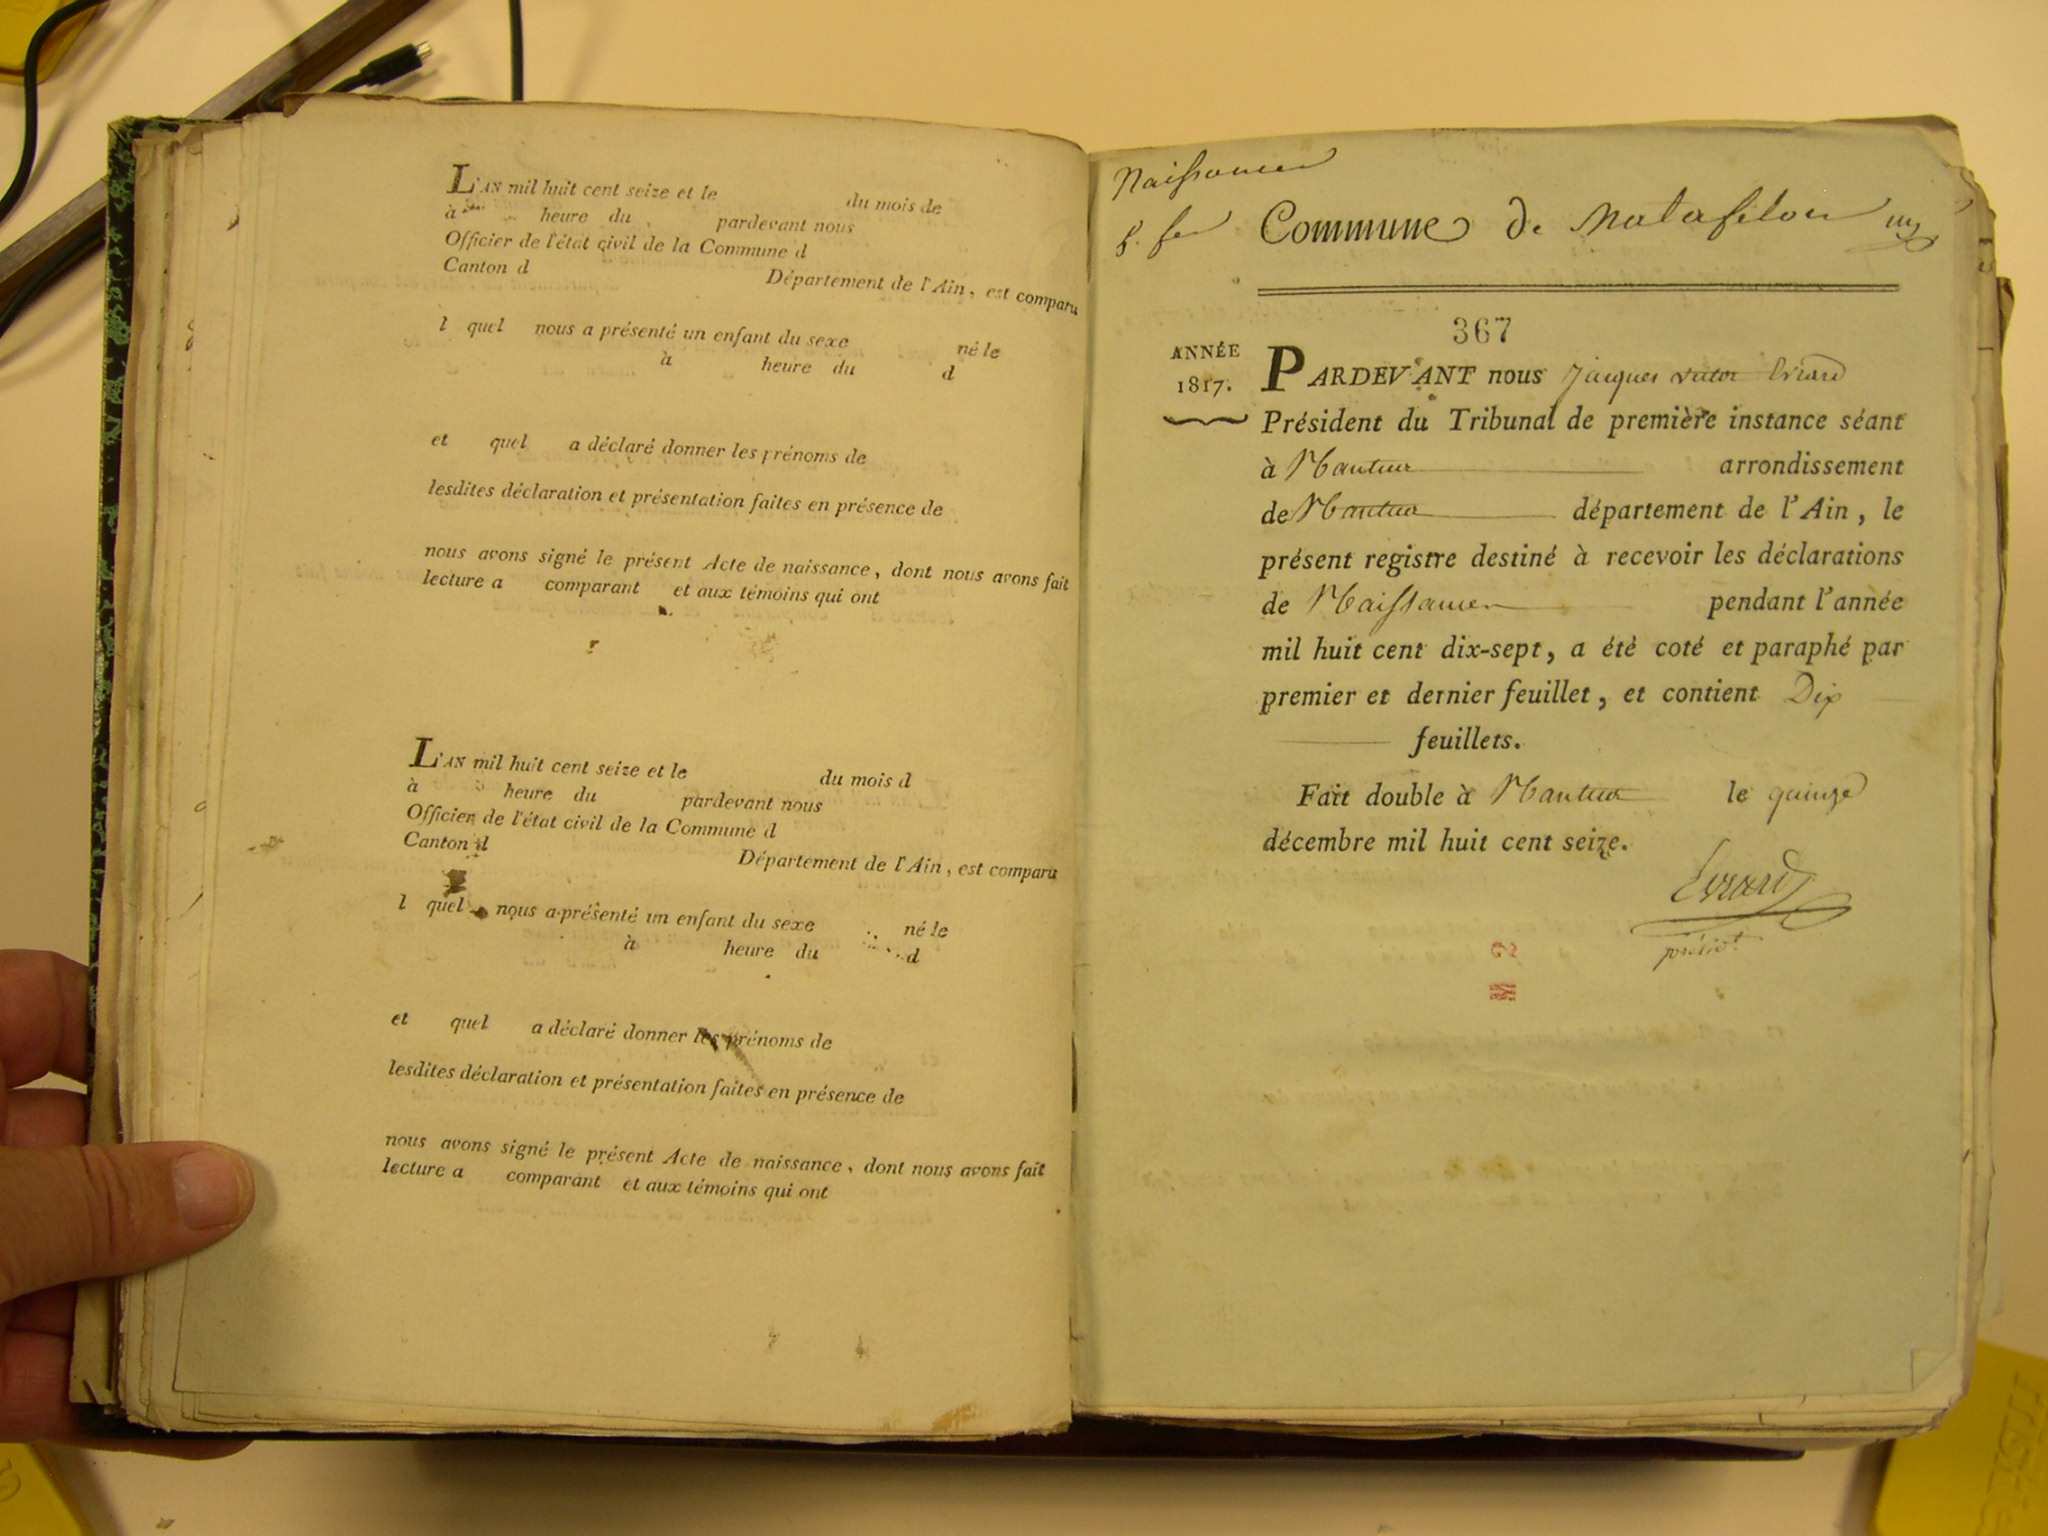 L'AN mil huit cent seize et le du mois de
à heure du pardevant nous
Officier de l'état civil de la Commune d
Canton d Département de l'Ain, est comparu
l quel nous a présenté un enfant du sexe né le
à heure du d
et quel a déclaré donner les prénoms de
lesdites déclaration et présentation faites en présence de
nous avons signé le présent Acte de naissance, dont nous avons fait
lecture a comparant et aux témoins qui ont
L'AN mil huit cent seize et le du mois d
à heure du pardevant nous
Officier de l'état civil de la Commune d
Canton d Département de l'Ain, est comparu
l quel nous a présenté un enfant du sexe né le
à heure du d
et quel a déclaré donner les prénoms de
lesdites déclaration et présentation faites en présence de
nous avons signé le présent Acte de naissance, dont nous avons fait
lecture a comparant et aux témoins qui ont
Naissances
Commune de Matafelon
367
ANNÉE
1817.
PARDEVANT nous Jacques Victor Evrard
Président du Tribunal de première instance séant
à Nantua arrondissement
de Nantua département de l'Ain, le
présent registre destiné à recevoir les déclarations
de Naissances pendant l'année
mil huit cent dix-sept, a été coté et paraphé par
premier et dernier feuillet, et contient Dix
feuillets.
Fait double à Nantua le quinze
décembre mil huit cent seize.
Evrard
présidt